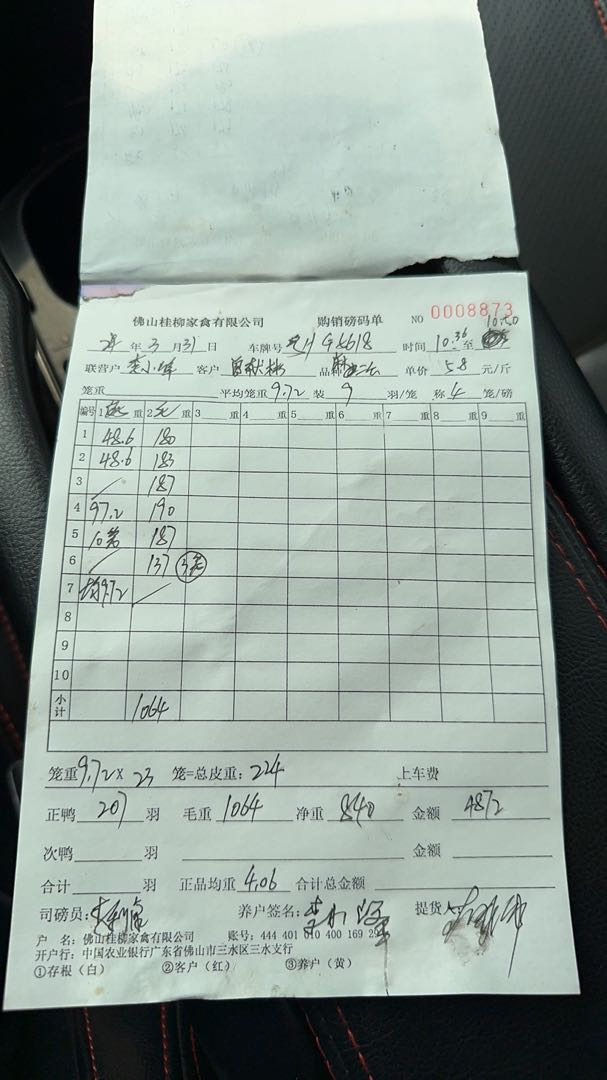 佛山桂柳家禽有限公司 购销磅码单 NO 0008873
年 3 月 31 日 车牌号 G 时间 10:36 至
联营户 客户 品种 单价 5.8 元/斤
笼重 平均笼重 9.72 装 9 羽/笼 称 4 笼/磅
编号 1 重 2 毛 重 3 重 4 重 5 重 6 重 7 重 8 重 9 重
1 48.6 180
2 48.6 183
3 187
4 97.2 190
5 10笼 187
6 137 3笼
7 均9.72
8
9
10
小计 1064
笼重 9.72 x 23 笼=总皮重: 224 上车费
正鸭 207 羽 毛重 1064 净重 840 金额 4872
次鸭 羽 金额
合计 羽 正品均重 4.06 合计总金额
司磅员: 养户签名: 提货人
户 名: 佛山桂柳家禽有限公司 账号: 444 401 010 400 169 29
开户行: 中国农业银行广东省佛山市三水区三水支行
①存根（白） ②客户（红） ③养户（黄）